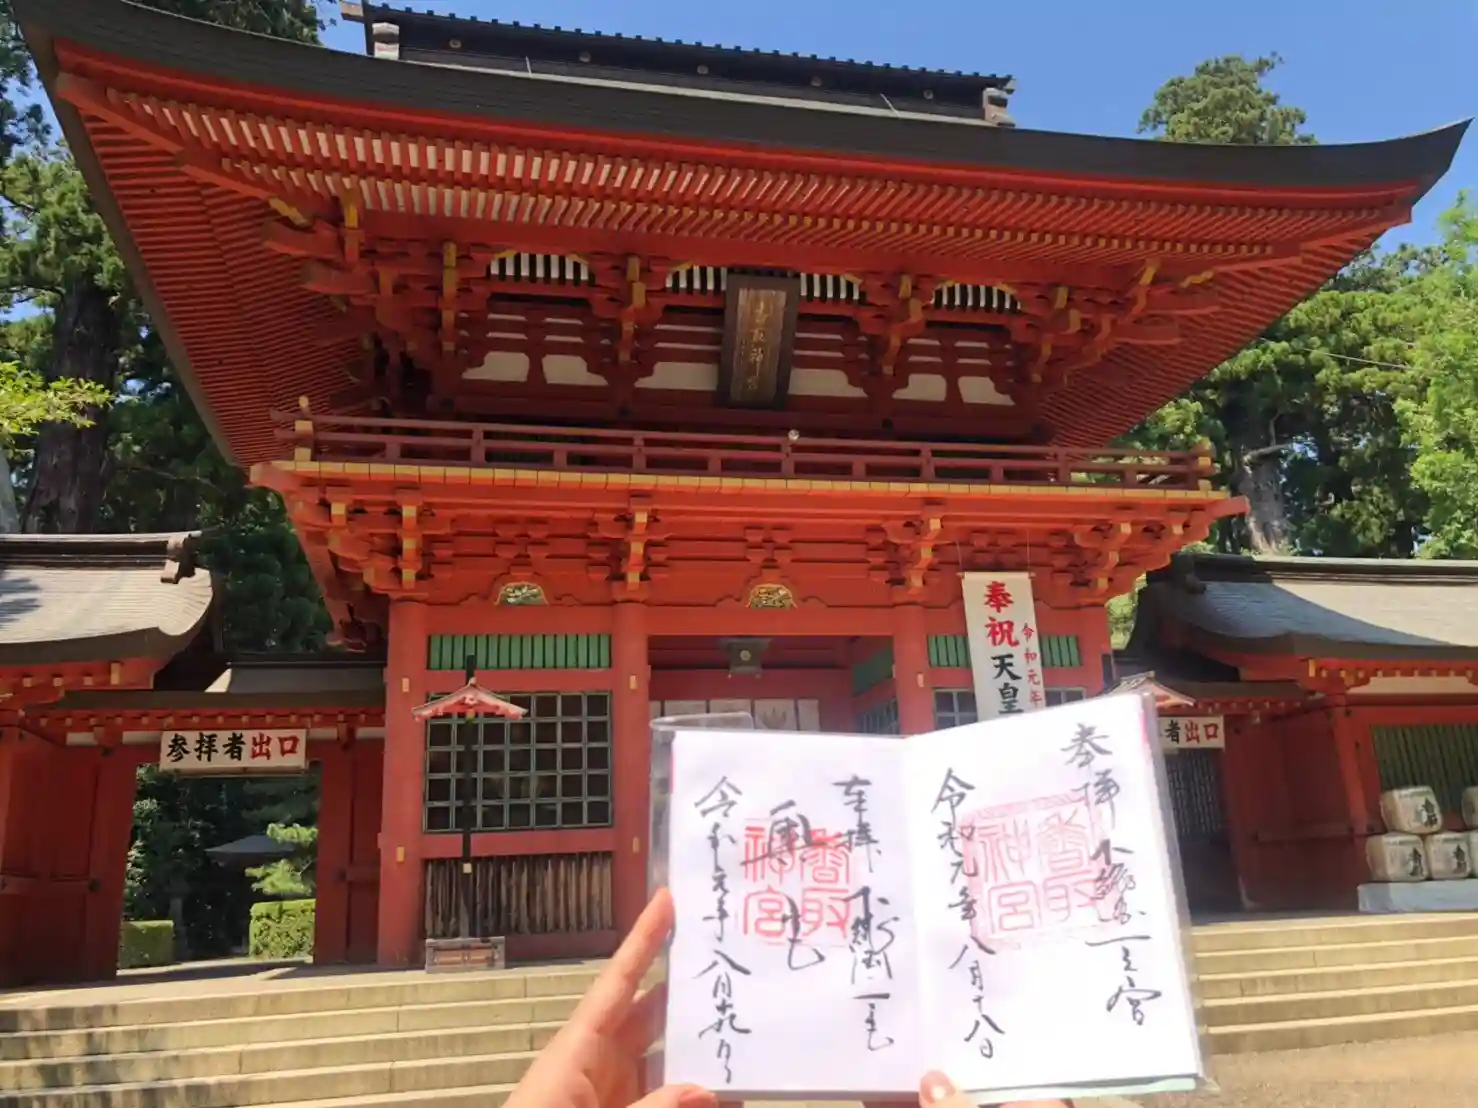 香取神宮
奉祝
天皇
令和元年
参拝者出口
者出口
奉拝
下総国一之宮
香取
神宮
令和元年八月十八日
奉拝
下総國一之宮
香取
神宮
奥宮
令和元年八月十八日